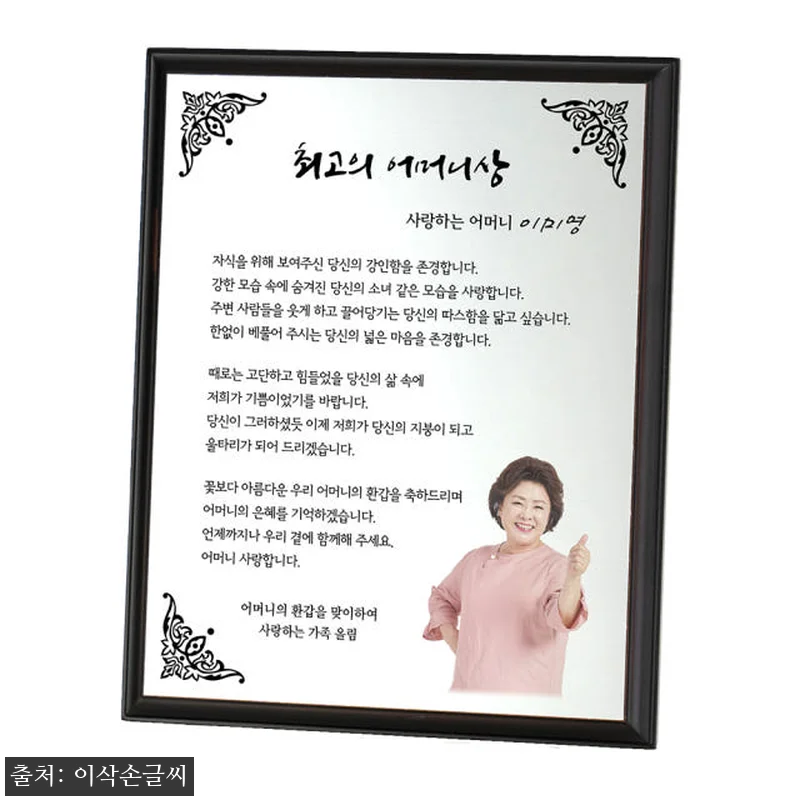 최고의 어머니상
사랑하는 어머니 이미영
자식을 위해 보여주신 당신의 강인함을 존경합니다.
강한 모습 속에 숨겨진 당신의 소녀 같은 모습을 사랑합니다.
주변 사람들을 웃게 하고 끌어당기는 당신의 따스함을 닮고 싶습니다.
한없이 베풀어 주시는 당신의 넓은 마음을 존경합니다.
때로는 고단하고 힘들었을 당신의 삶 속에
저희가 기쁨이었기를 바랍니다.
당신이 그러하셨듯 이제 저희가 당신의 지붕이 되고
울타리가 되어 드리겠습니다.
꽃보다 아름다운 우리 어머니의 환갑을 축하드리며
어머니의 은혜를 기억하겠습니다.
언제까지나 우리 곁에 함께해 주세요.
어머니 사랑합니다.
어머니의 환갑을 맞이하여
사랑하는 가족 올림
출처: 이삭손글씨